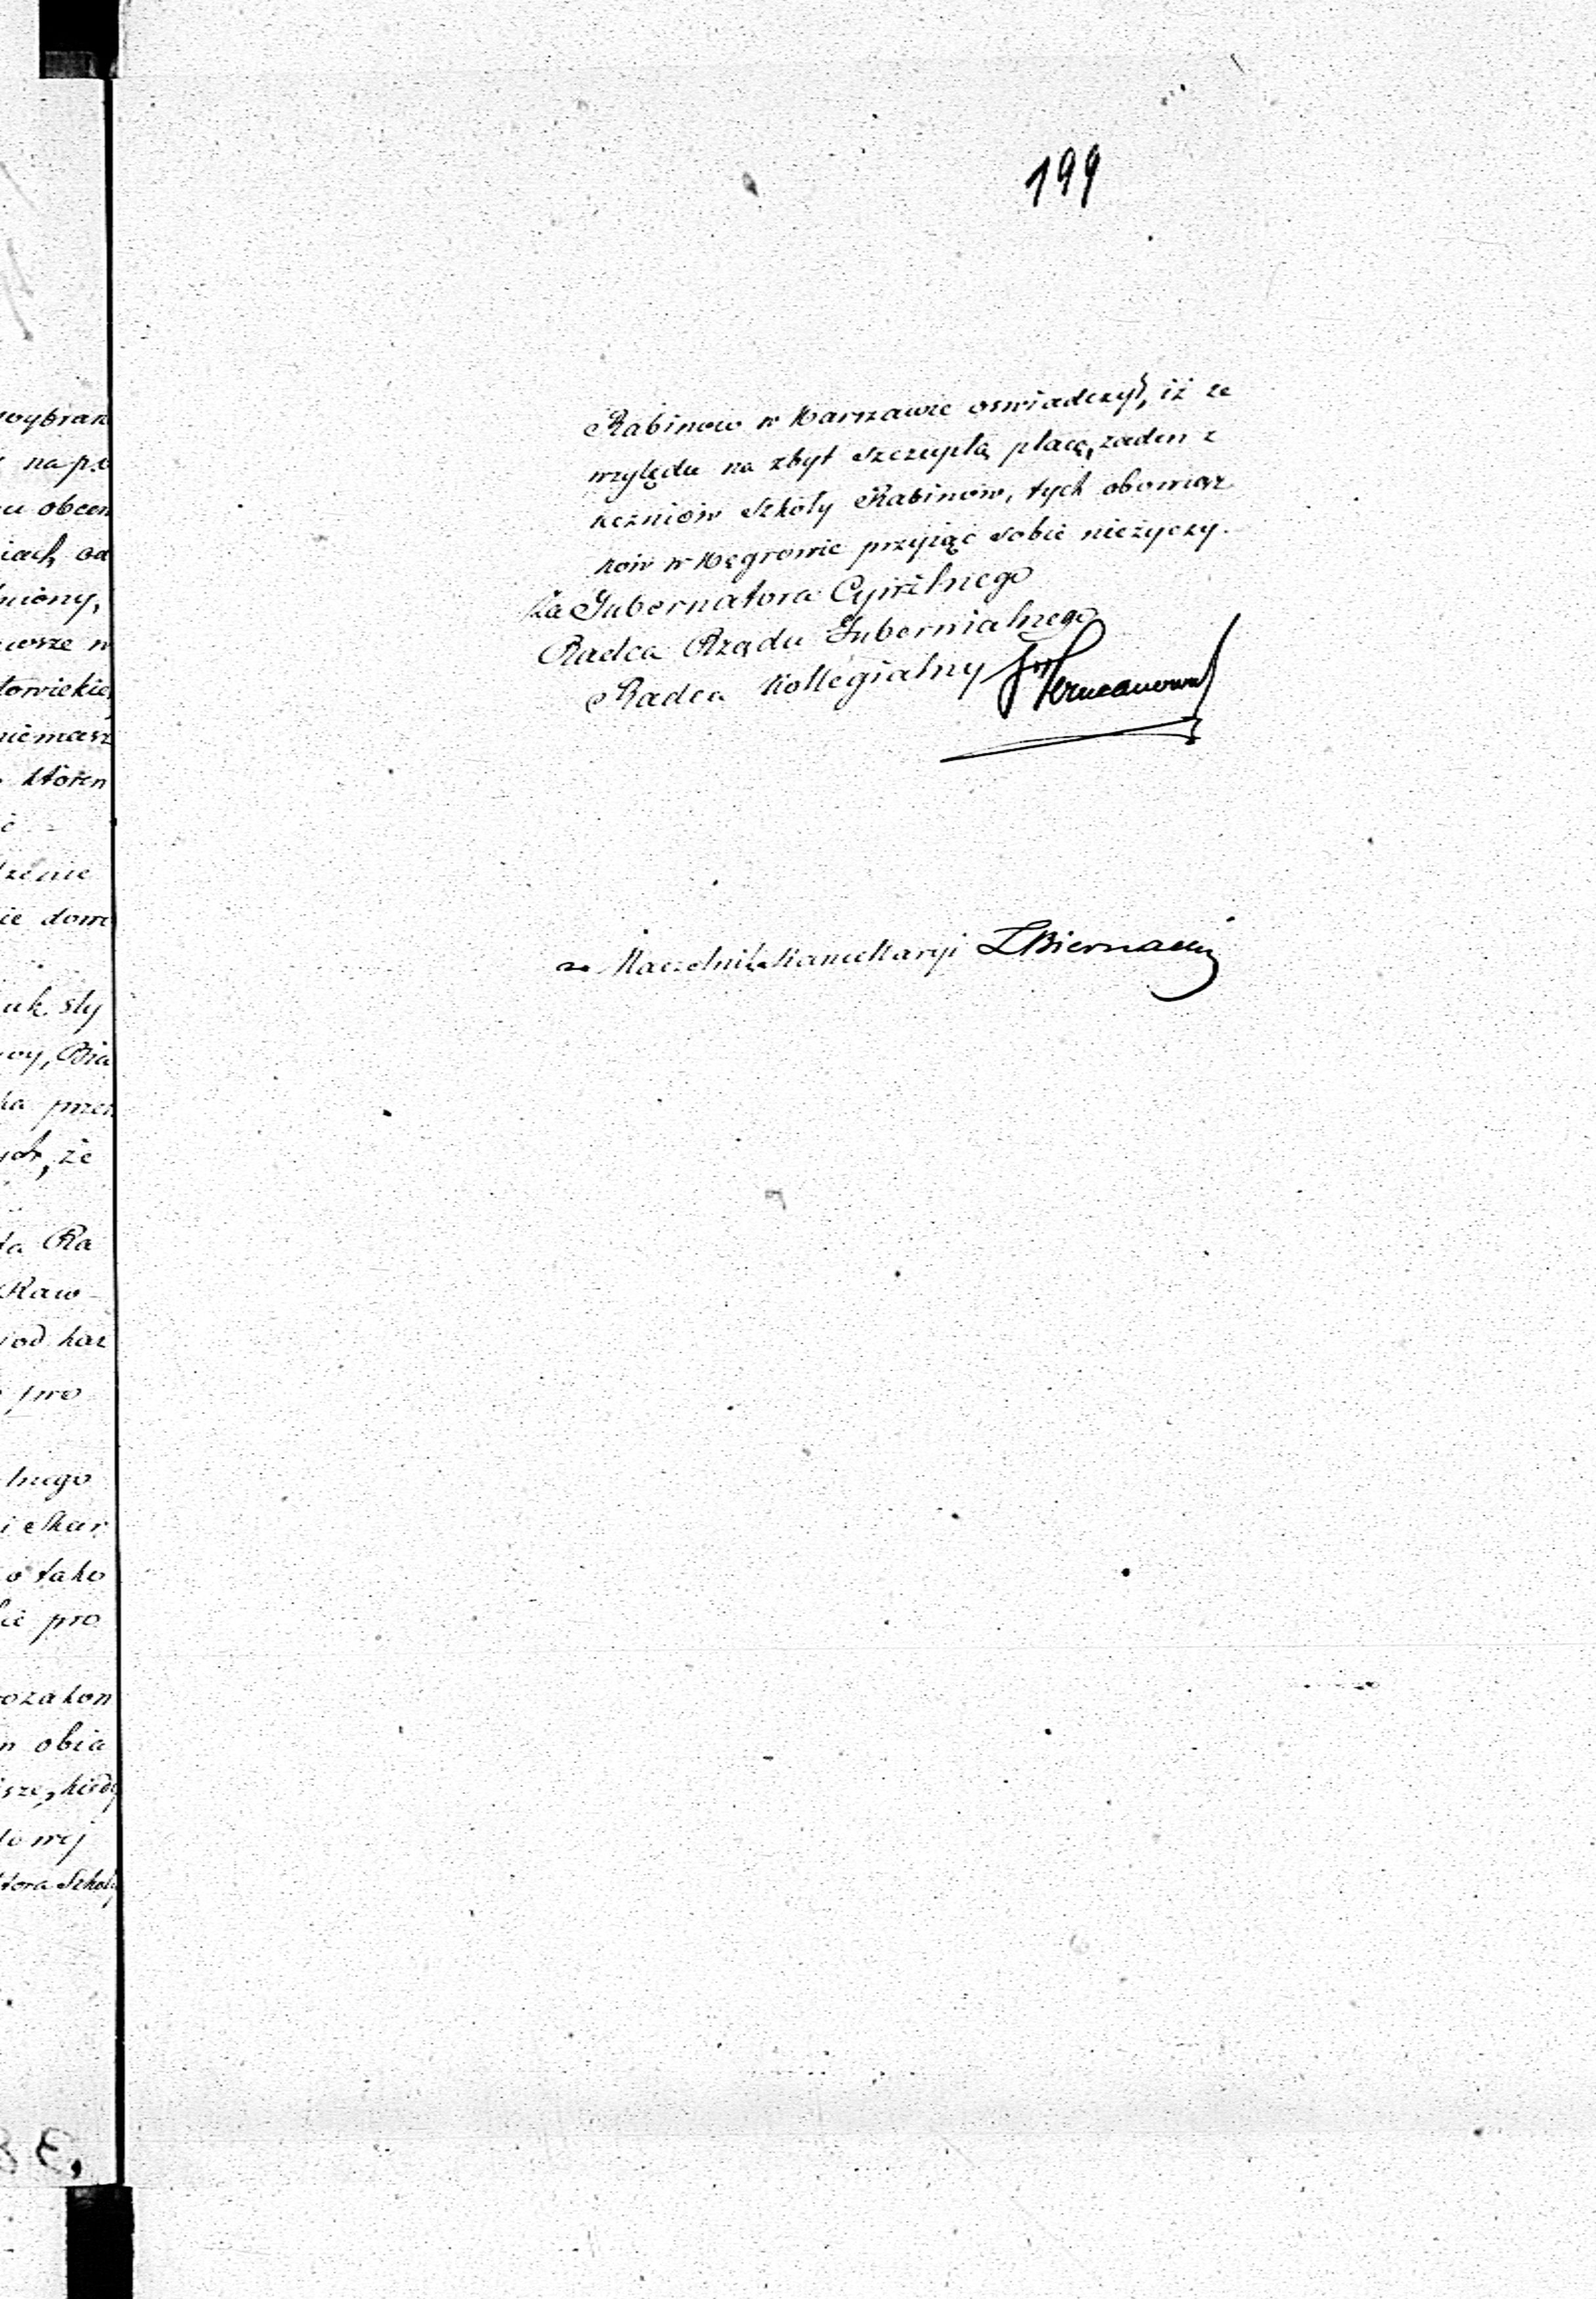 199
Rabinow w Warszawie oswiadczył, iż ze
względu na zbyt szczupłą płacę, żaden z
uczniów Szkoły Rabinów, tych obowiąz
ków w Węgrowie przyjąć sobie nieżyczy.
Za Gubernatora Cywilnego
Radca Rządu Gubernialnego
Radca Kollegialny
Naczelnik Kancellaryi LBiernacki
wybran
na po
u obcen
iach, od
niony,
wsze w
towickie
niemasz
ktoren
dzenie
ie dowo
uk. sly
wy, Bia
ka przez
ych, że
ta Ra
Raw
od kaz
pro
lnego
i Skar
o tako
pro
ozakon
m obia
sze, kiedy
towej
tora Szkoły